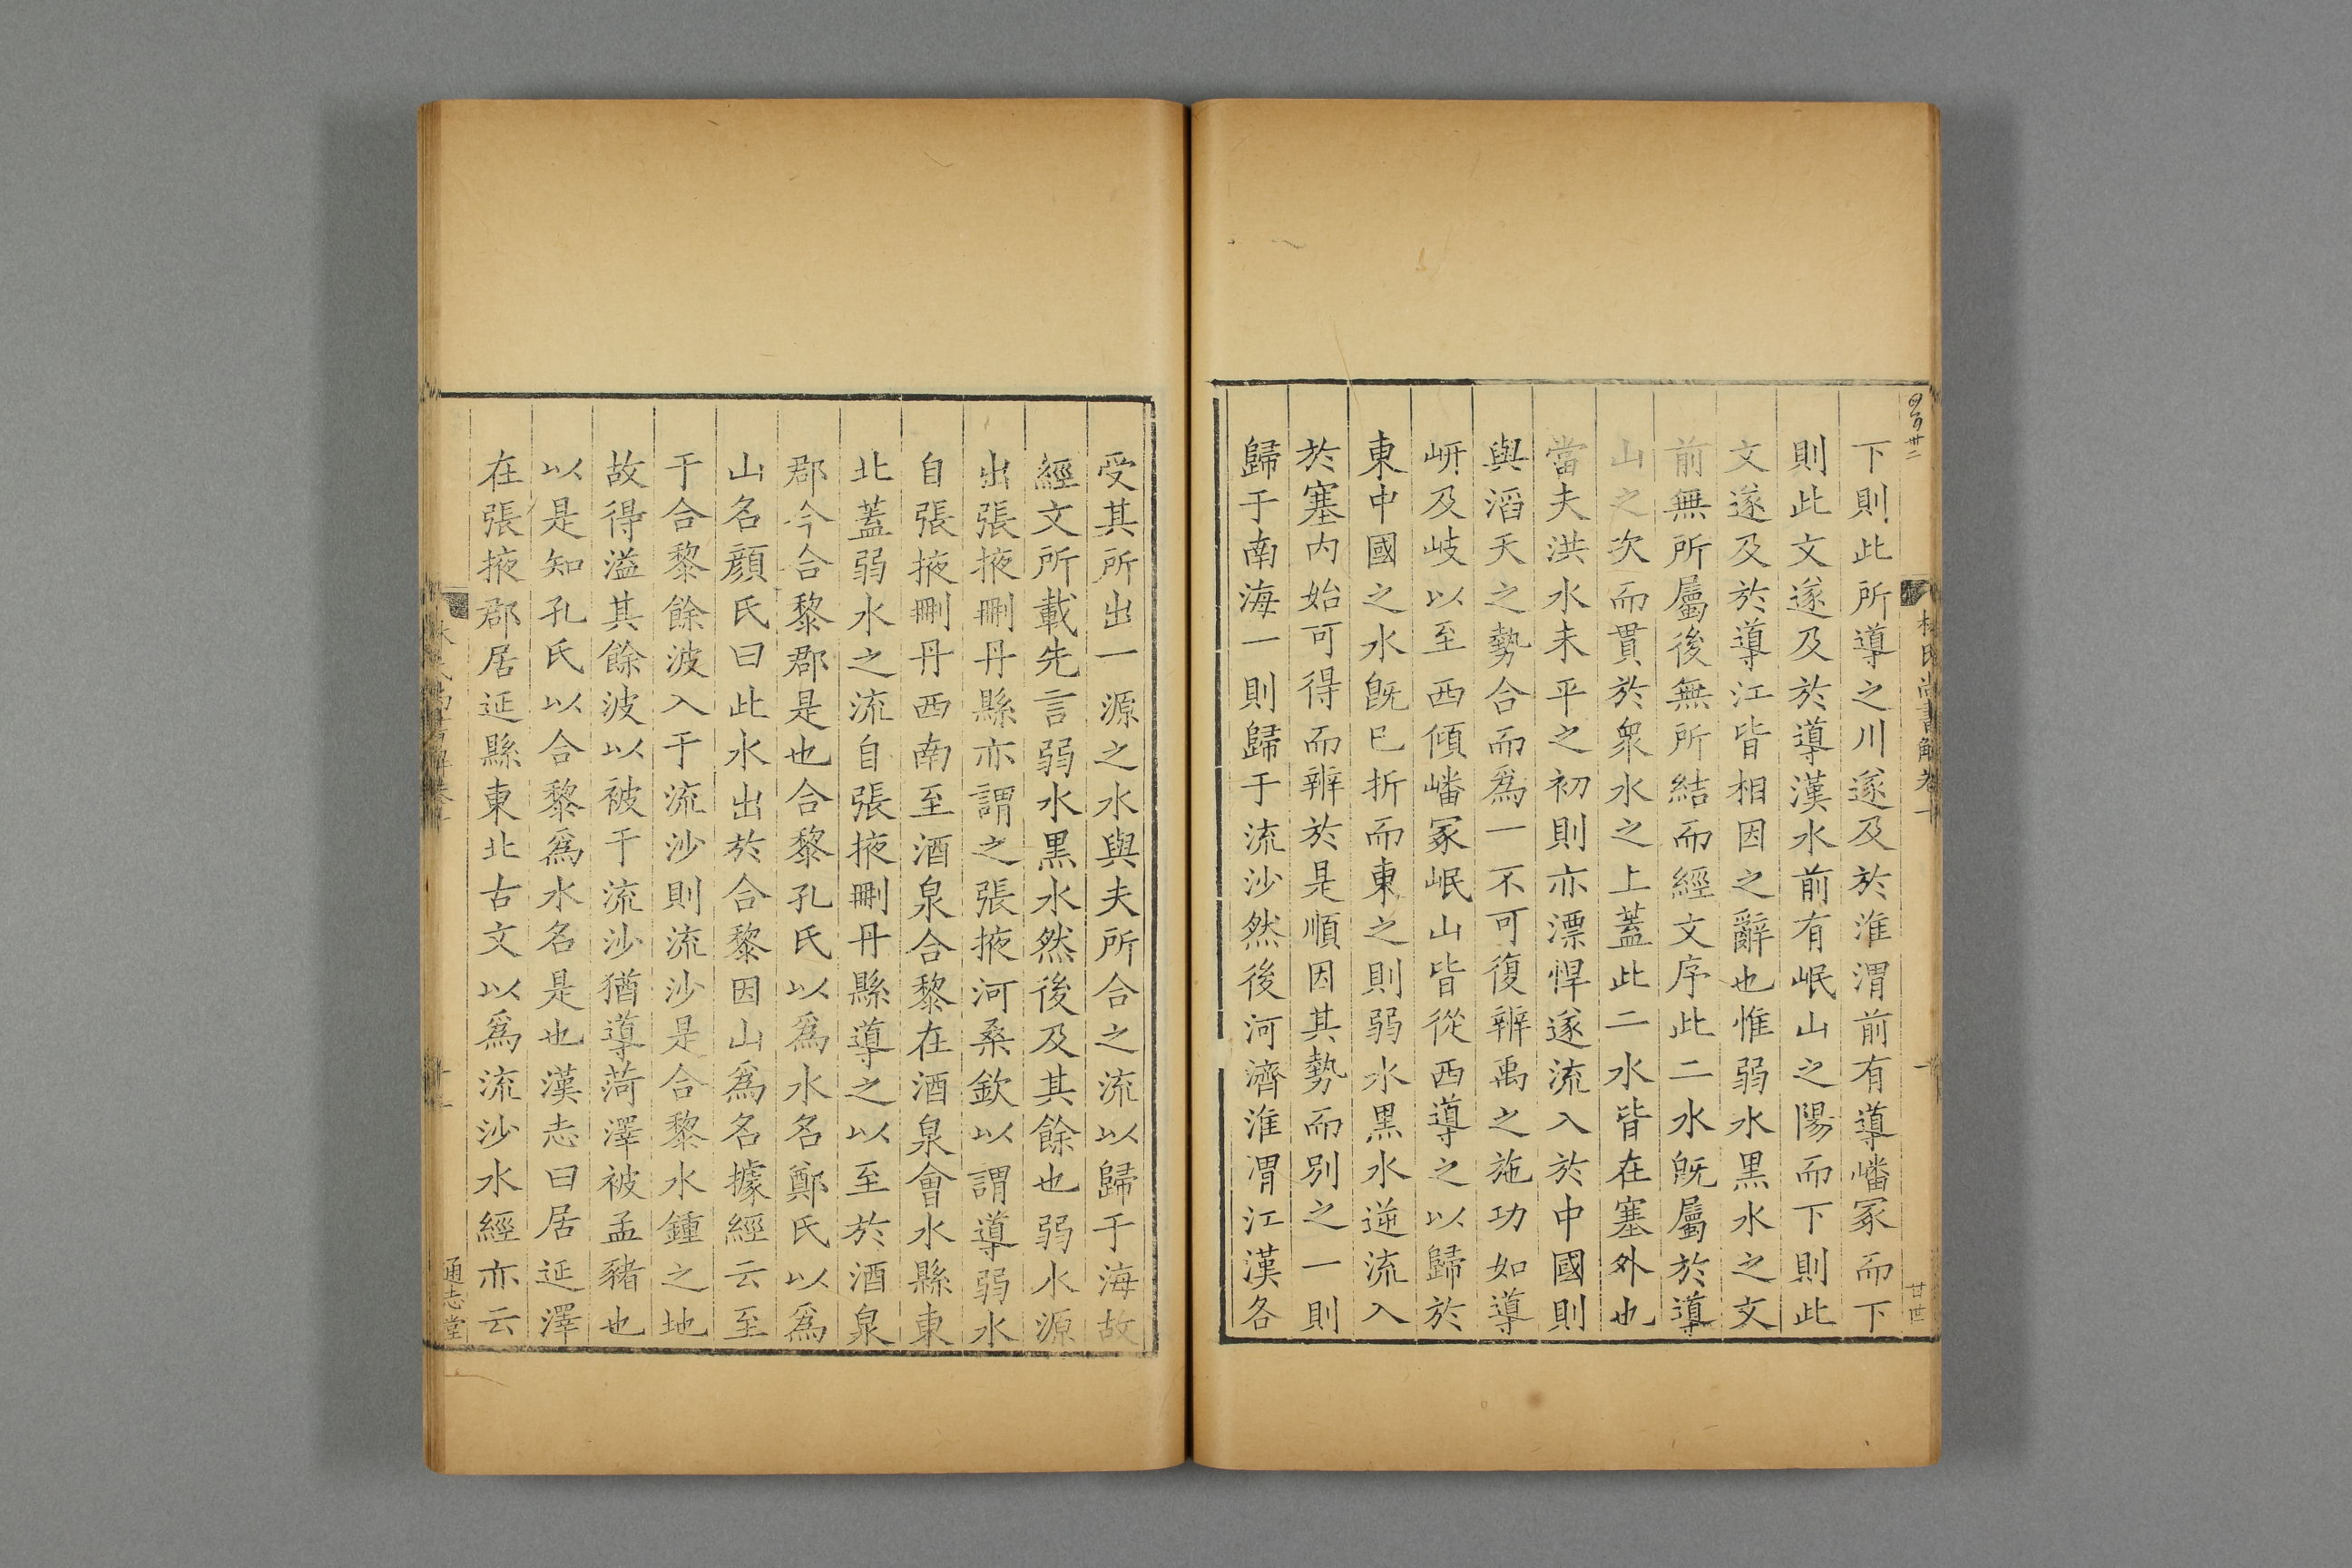 下則此所導之川遂及於淮渭前有導嶓冢而下
則此文遂及於導漢水前有岷山之陽而下則此
文遂及於導江皆相因之辭也惟弱水黑水之文
前無所屬後無所結而經文序此二水旣屬於導
山之次而貫於衆水之上蓋此二水皆在塞外也
當夫洪水未平之初則亦漂悍遂流入於中國則
與滔天之勢合而爲一不可復辨禹之施功如導
岍及岐以至西傾嶓冢岷山皆從西導之以歸於
東中國之水旣巳折而東之則弱水黑水逆流入
於塞內始可得而辨於是順因其勢而別之一則
歸于南海一則歸于流沙然後河濟淮渭江漢各
受其所出一源之水與夫所合之流以歸于海故
經文所載先言弱水黑水然後及其餘也弱水源
出張掖刪丹縣亦謂之張掖河桑欽以謂導弱水
自張掖刪丹西南至酒泉合黎在酒泉會水縣東
北蓋弱水之流自張掖刪丹縣導之以至於酒泉
郡今合黎郡是也合黎孔氏以爲水名鄭氏以爲
山名顔氏曰此水出於合黎因山爲名據經云至
于合黎餘波入于流沙則流沙是合黎水鍾之地
故得溢其餘波以被于流沙猶導菏澤被孟豬也
以是知孔氏以合黎爲水名是也漢志曰居延澤
在張掖郡居延縣東北古文以爲流沙水經亦云
通志堂